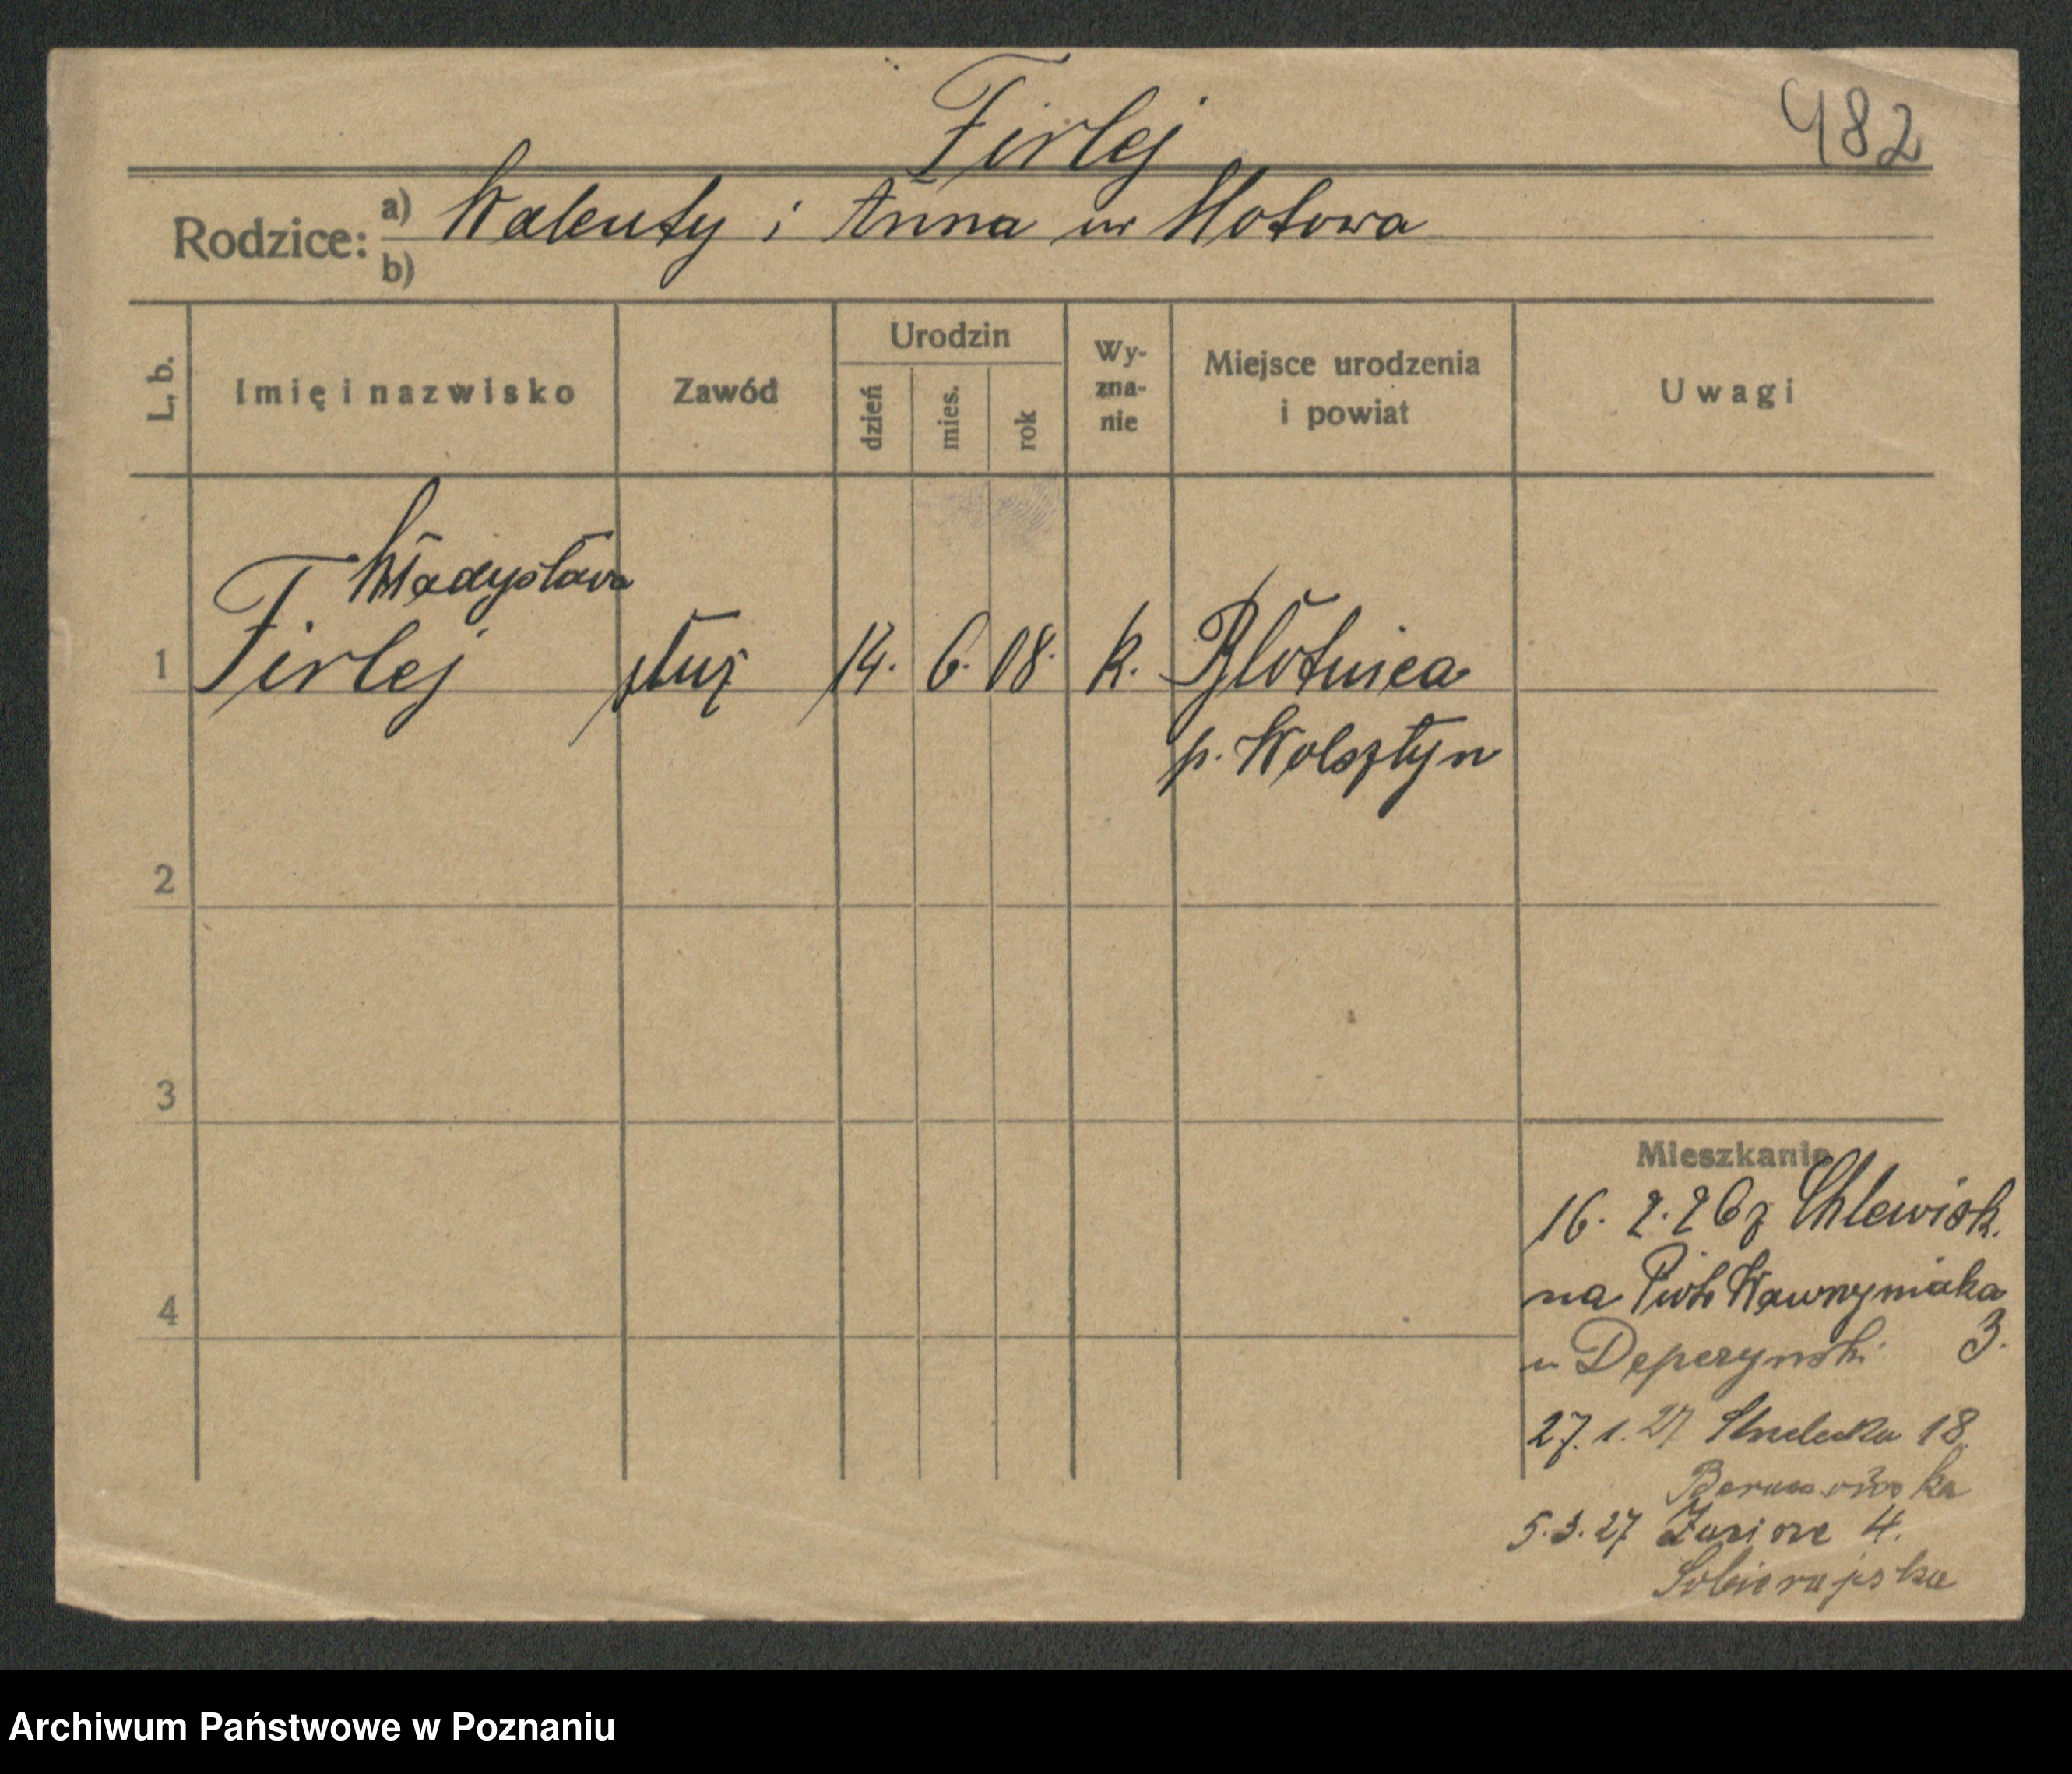 Firlej
482
Rodzice: a) Walenty i Anna ur Motowa
b)
L. b.
Imię i nazwisko
Zawód
Urodzin
dzień
mies.
rok
Wy-
zna-
nie
Miejsce urodzenia
i powiat
Uwagi
Władysława
1 Firlej służ 14. 6. 08. k. Błotnica
p. Wolsztyn
2
3
4
Mieszkanie
16. 2. 26 z Chlewisk.
na Piotr Wawrzyniaka
3.
u Depczynski
27. 1. 27 Strzelecka 18
5. 3. 27 4.
Sobierajska
Archiwum Państwowe w Poznaniu